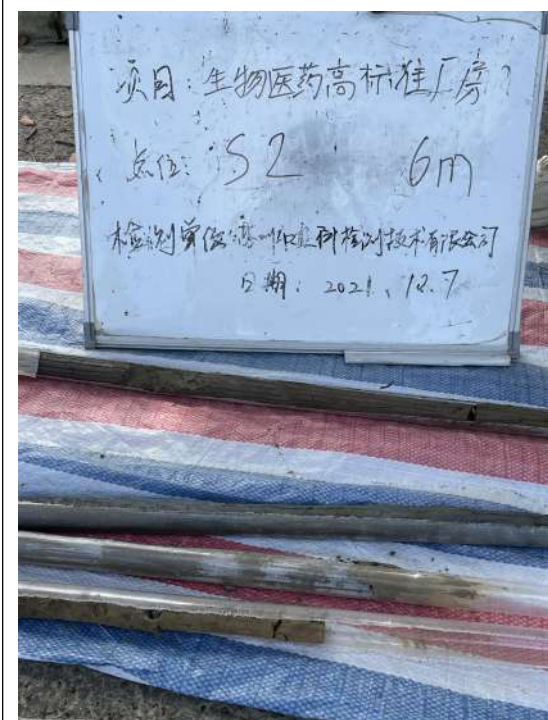 项目：生物医药高标准厂房
点位：S2 6m
检测单位：科检测技术有限公司
日期：2021.12.7